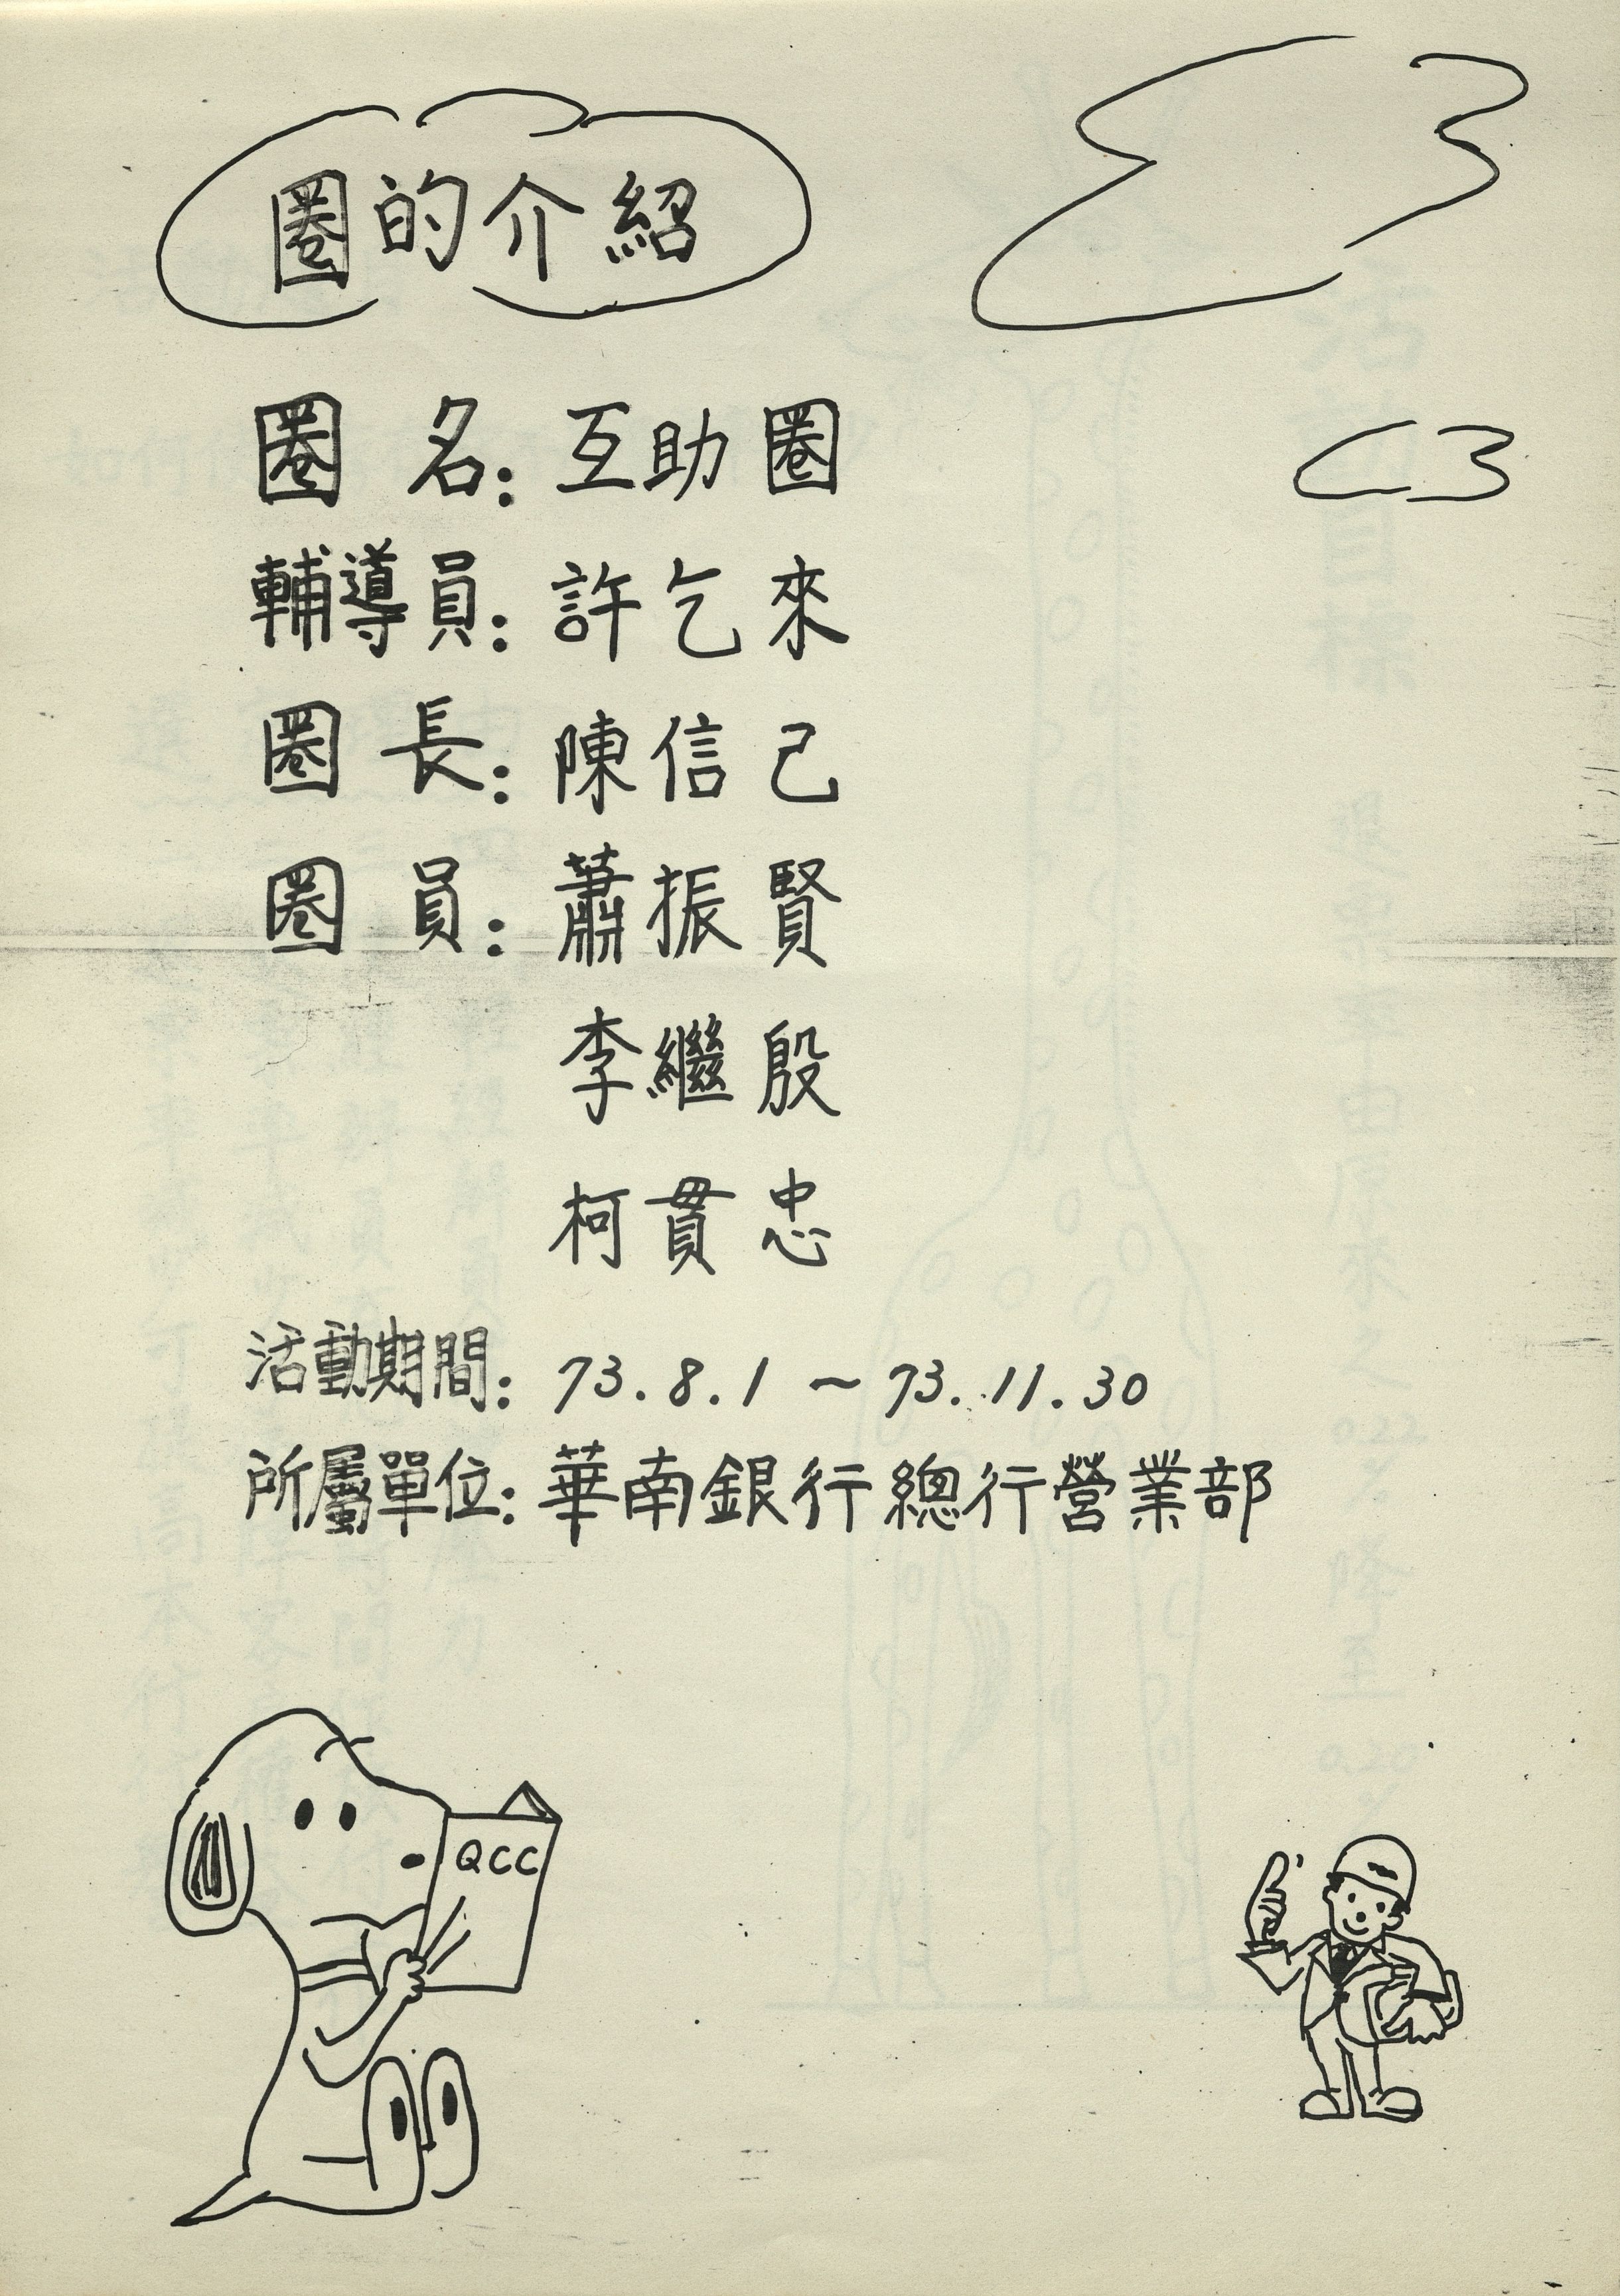 圈的介紹
圈 名:互助圈
輔導員:許乞來
圈 長:陳信己
圈 員:蕭振賢
李繼殷
柯貫忠
活動期間:73.8.1~73.11.30
所屬單位:華南銀行總行營業部
QCC